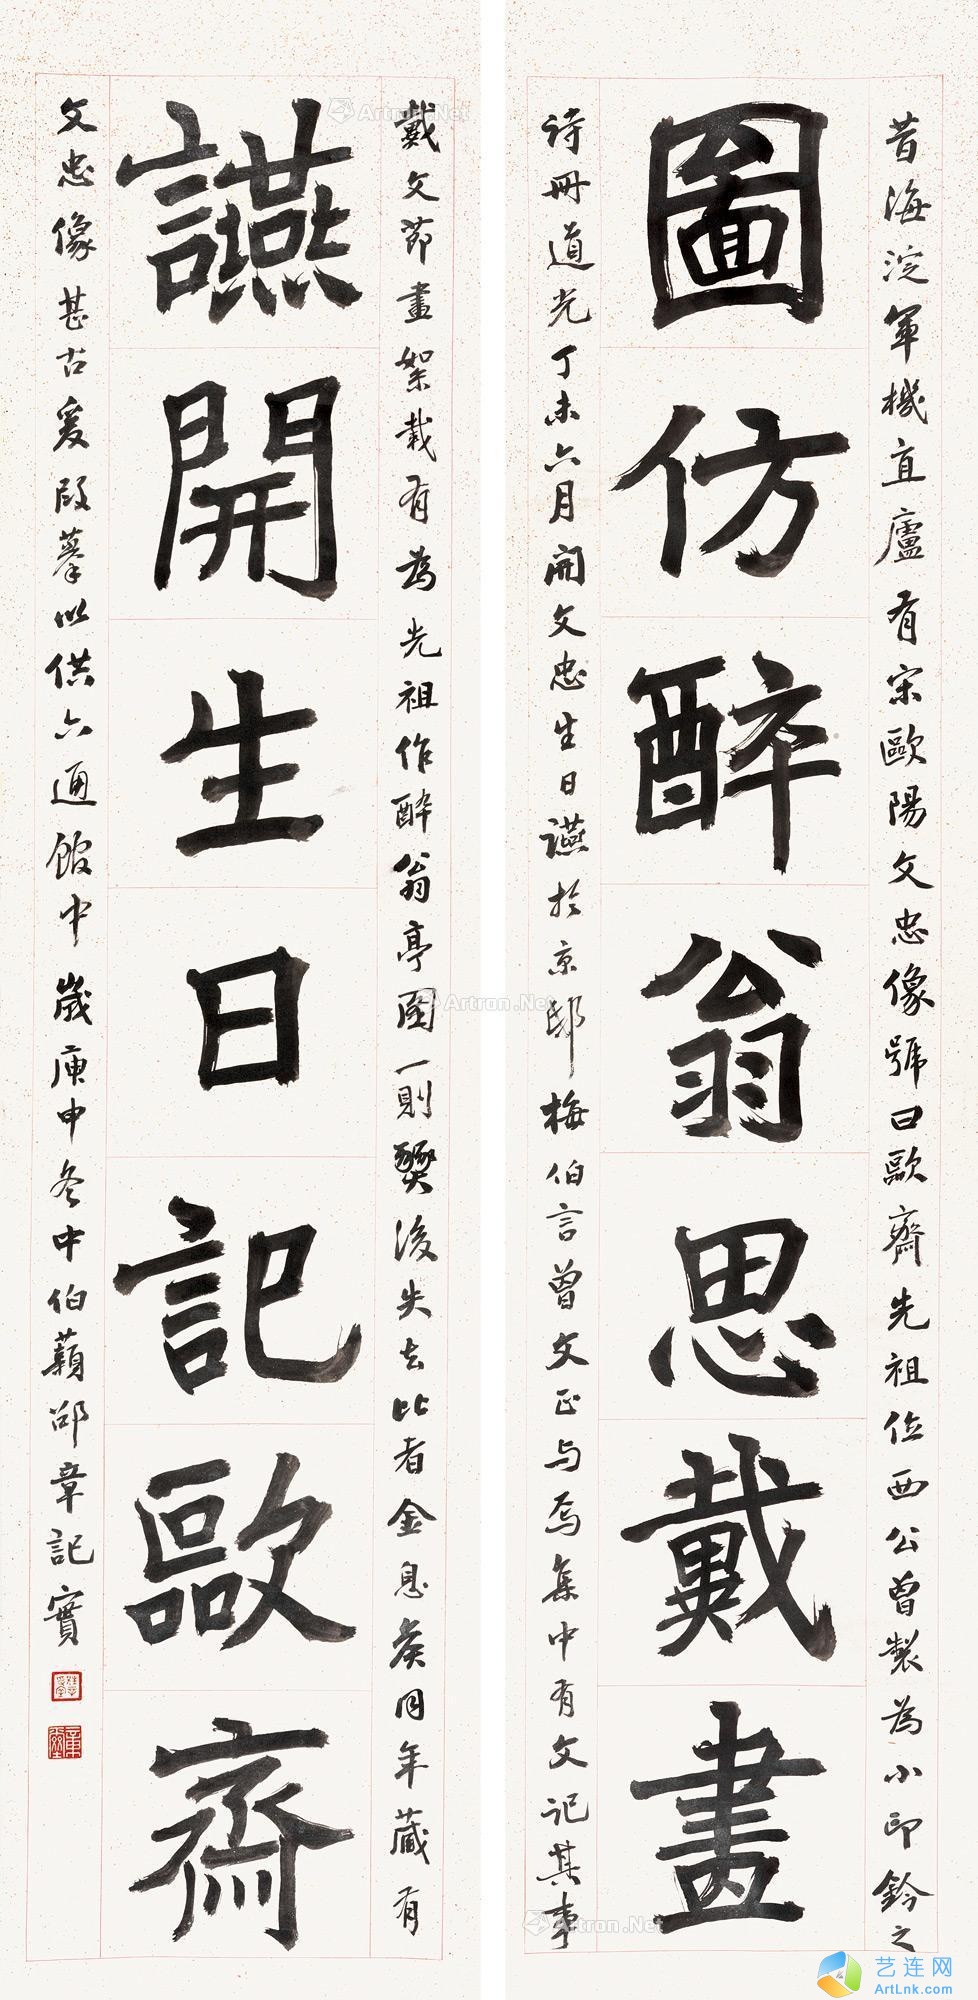 昔海淀軍機直廬有宋歐陽文忠像號曰歐齋先祖位西公曾製為小印鈐之
圖仿醉翁思戴畫
詩冊道光丁未六月開文忠生日讌於京邸梅伯言曾文正与焉集中有文記其事
戴文節畫絮載有為先祖作醉翁亭圖一則燹後失去比者金息侯同年藏有
讌開生日記歐齋
文忠像甚古爰叚摹以供六通館中歲庚申冬中伯藾邵章記實
Artron.Net
Artron.Net
Artron.Net
Artron.Net
艺连网
ArtLnk.com